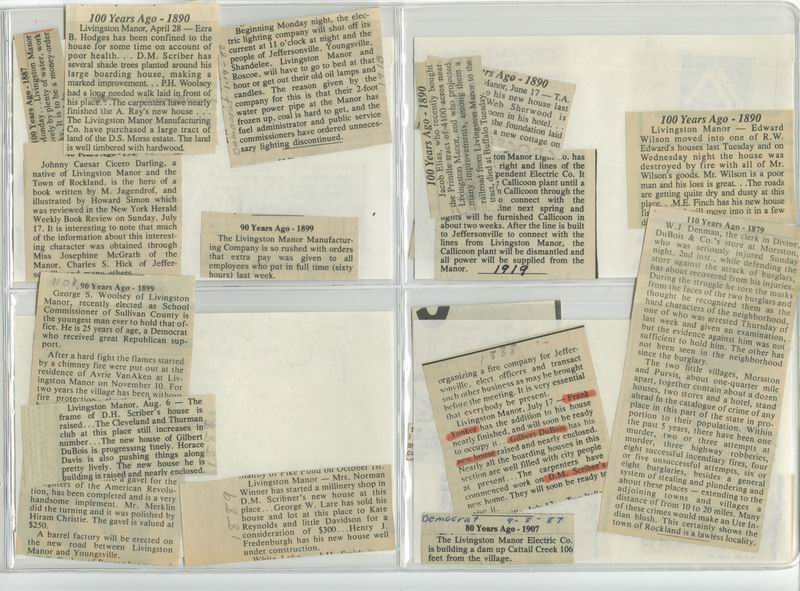 100 Years Ago - 1887
Livingston Manor
by plenty of water, work
It is to be a money-order
100 Years Ago - 1890
Livingston Manor, April 28 — Ezra
B. Hodges has been confined to the
house for some time on account of
poor health. . . D.M. Scriber has
several shade trees planted around his
large boarding house, making a
marked improvement. . . P.H. Woolsey
had a long needed walk laid in front of
his place. . . The carpenters have nearly
finished the A. Ray's new house. . .
The Livingston Manor Manufacturing
Co. have purchased a large tract of
land of the D.S. Morss estate. The land
is well timbered with hardwood.
Johnny Caesar Cicero Darling, a
native of Livingston Manor and the
Town of Rockland, is the hero of a
book written by M. Jagendrof, and
illustrated by Howard Simon which
was reviewed in the New York Herald
Weekly Book Review on Sunday, July
17. It is interesting to note that much
of the information about this interest-
ing character was obtained through
Miss Josephine McGrath of the
Manor, Charles S. Hick of Jeffer-
many others
Beginning Monday night, the elec-
tric lighting company will shut off its
current at 11 o'clock at night and the
people of Jeffersonville, Youngsville,
Shandelee, Livingston Manor and
Roscoe, will have to go to bed at that
hour or get out their old oil lamps and
candles. The reason given by the
company for this is that their 2-foot
water power pipe at the Manor has
frozen up, coal is hard to get, and the
fuel administrator and public service
commissioners have ordered unneces-
sary lighting discontinued.
1918
90 Years Ago - 1899
The Livingston Manor Manufactur-
ing Company is so rushed with orders
that extra pay was given to all
employees who put in full time (sixty
hours) last week.
100 Years Ago - 1890
Jacob Elias, who recently bought
the Prindle tract of 4100 acres near
Livingston Manor, and who projected
many improvements, among them a
railroad from Livingston Manor to the
tract, died at Buffalo Tuesday
Years Ago - 1890
Manor, June 17 — T.A.
his new house last
Web Sherwood is
room in his hotel.
the foundation laid
a new cottage on
Manor Light Co. has
right and lines of the
pendent Electric Co. It
Callicoon plant until a
Callicoon through the
to connect with the
line next spring and
lights will be furnished Callicoon in
about two weeks. After the line is built
to Jeffersonville to connect with the
lines from Livingston Manor, the
Callicoon plant will be dismantled and
all power will be supplied from the
Manor. 1919
100 Years Ago - 1890
Livingston Manor — Edward
Wilson moved into one of R.W.
Edward's houses last Tuesday and on
Wednesday night the house was
destroyed by fire with all of Mr.
Wilson's goods. Mr. Wilson is a poor
man and his loss is great. . .The roads
are getting quite dry and dusty at this
place. . .M.E. Finch has his new house
will move into it in a few
110 Years Ago - 1879
W.J. Denman, the clerk in Divine,
DuBois & Co.'s store at Morsston,
who was seriously injured Sunday
night, 2nd inst., while defending the
store against the attack of burglars,
has about recovered from his injuries.
During the struggle he tore the masks
from the faces of the two burglars and
thought he recognized them as the
hard characters of the neighborhood,
one of who was arrested Thursday of
last week and given an examination,
but the evidence against him was not
sufficient to hold him. The other has
not been seen in the neighborhood
since the burglary.
The two little villages, Morsston
and Purvis, about one-quarter mile
apart, together contain about a dozen
houses, two stores and a hotel, stand
ahead in the catalogue of crime of any
place in this part of the state in pro-
portion to their population. Within
the past 5 years, there have been one
murder, two or three attempts at
murder, three highway robberies,
eight successful incendiary fires, four
or five unsuccessful attempts, six or
eight burglaries, besides a general
system of stealing and plundering and
about these places — extending to the
adjoining towns and villages a
distance of from 10 to 20 miles. Many
of these crimes would make an Ute In-
dian blush. This certainly shows the
town of Rockland is a lawless locality.
NOV.
90 Years Ago - 1899
George S. Woolsey of Livingston
Manor, recently elected as School
Commissioner of Sullivan County is
the youngest man ever to hold that of-
fice. He is 25 years of age, a Democrat
who received great Republican sup-
port.
After a hard fight the flames started
by a chimney fire were put out at the
residence of Avrie VanAken at Liv-
ingston Manor on November 10. For
two years the village has been without
fire protection
Livingston Manor, Aug. 6 — The
frame of D.H. Scriber's house is
raised. . .The Cleveland and Thurman
club at this place still increases in
number. . .The new house of Gilbert
DuBois is progressing finely. Horace
Davis is also pushing things along
pretty lively. The new house he is
building is raised and nearly enclosed.
a gavel for the
Daughters of the American Revolu-
tion, has been completed and is a very
handsome implement. Mr. Mecklin
did the turning and it was polished by
Hiram Christie. The gavel is valued at
$250.
A barrel factory will be erected on
the new road between Livingston
Manor and Youngsville.
1889
Pond on October 1st.
Livingston Manor — Mrs. Norman
Winner has started a millinery shop in
D.M. Scriber's new house at this
place. . .George W. Lare has sold his
house and lot at this place to Kate
Reynolds and little Davidson for a
consideration of $300. . .Henry J.
Fredenburgh has his new house well
under construction.
1888
organizing a fire company for Jeffer-
sonville, elect officers and transact
such other business as may be brought
before the meeting. It is very essential
that everybody be present.
Livingston Manor, July 17 — Frank
Yonker has the addition to his house
nearly finished, and will soon be ready
to occupy it. . .Gilbert DuBois has his
new house raised and nearly enclosed.
Nearly all the boarding houses in this
section are well filled with city people
at present. . .The carpenters have
commenced work on D.M. Scriber's
new home. They will soon be ready to
Democrat 9-2-87
80 Years Ago - 1907
The Livingston Manor Electric Co.
is building a dam up Cattail Creek 106
feet from the village.